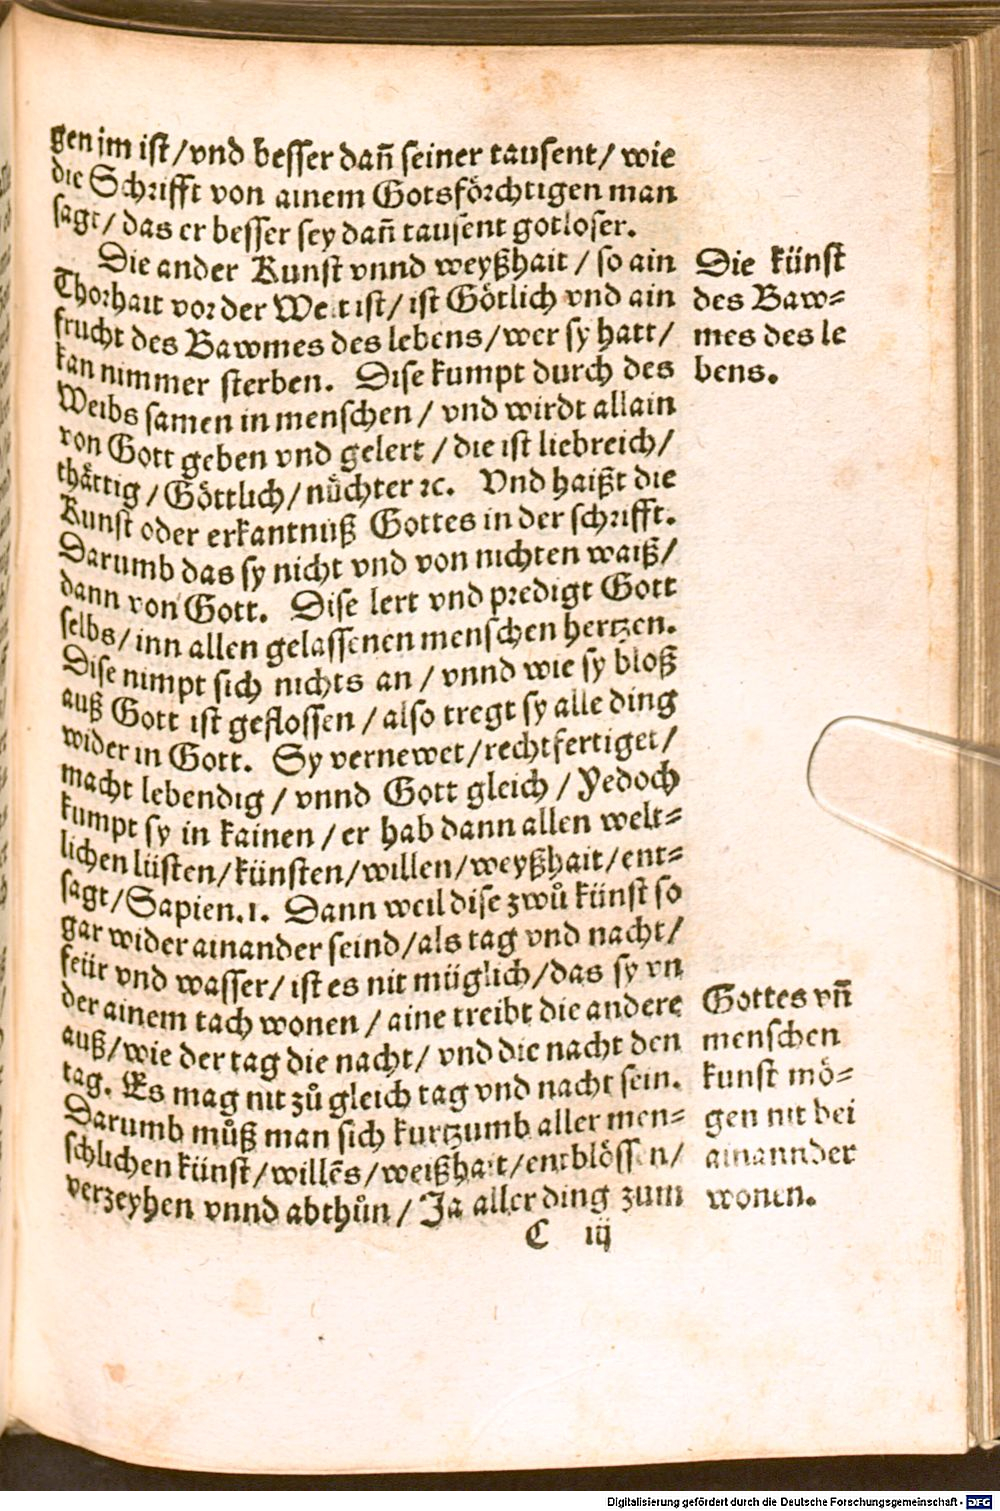 gen jm ist/vnd besser dañ seiner tausent/ wie
die Schrifft von ainem Gotsförchtigen man
sagt/ das er besser sey dañ tausent gotloser.
Die ander Kunst vnnd weyßhait / so ain
Thorhait vor der Welt ist/ ist Götlich vnd ain
frucht des Bawmes des lebens/wer sy hatt/
kan nimmer sterben. Dise kumpt durch des
Weibs samen in menschen / vnd wirdt allain
von Gott geben vnd gelert / die ist liebreich/
thättig / Göttlich/ nüchter ꝛc. Vnd haißt die
Kunst oder erkantnuß Gottes in der schrifft.
Darumb das sy nicht vnd von nichten waiß/
dann von Gott. Dise lert vnd predigt Gott
selbs/ inn allen gelassenen menschen hertzen.
Dise nimpt sich nichts an / vnnd wie sy bloß
auß Gott ist geflossen / also tregt sy alle ding
wider in Gott. Sy vernewet/rechtfertiget/
macht lebendig / vnnd Gott gleich / Yedoch
kumpt sy in kainen / er hab dann allen welt⸗
lichen lüsten/künsten/willen/weyßhait/ent⸗
sagt/Sapien.1. Dann weil dise zwů künst so
gar wider ainander seind/als tag vnd nacht/
feür vnd wasser/ ist es nit müglich/das sy vn
der ainem tach wonen / aine treibt die andere
auß/wie der tag die nacht/ vnd die nacht den
tag. Es mag nit zů gleich tag vnd nacht sein.
Darumb můß man sich kurtzumb aller men⸗
schlichen künst/willēs/weißhait/entblössen/
verzeyhen vnnd abthůn / Ja aller ding zum
C iij
Die künst
des Baw⸗
mes des le
bens.
Gottes vñ
menschen
kunst mö⸗
gen nit bei
ainannder
wonen.
Digitalisierung gefördert durch die Deutsche Forschungsgemeinschaft - DFG